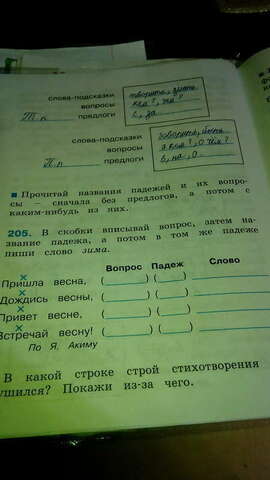 слова-подсказки
вопросы
Т. п. предлоги
творить, дать
кем?, чем?
с, за
слова-подсказки
вопросы
П. п. предлоги
говорить,
о ком?, о чём?
в, на, о
■ Прочитай названия падежей и их вопро-
сы — сначала без предлогов, а потом с
каким-нибудь из них.
205. В скобки вписывай вопрос, затем на-
звание падежа, а потом в том же падеже
пиши слово зима.
Вопрос Падеж Слово
Пришла весна, ( ) ( )
Дождись весны, ( ) ( )
Привет весне, ( ) ( )
Встречай весну! ( ) ( )
По Я. Акиму
В какой строке строй стихотворения
ушился? Покажи из-за чего.